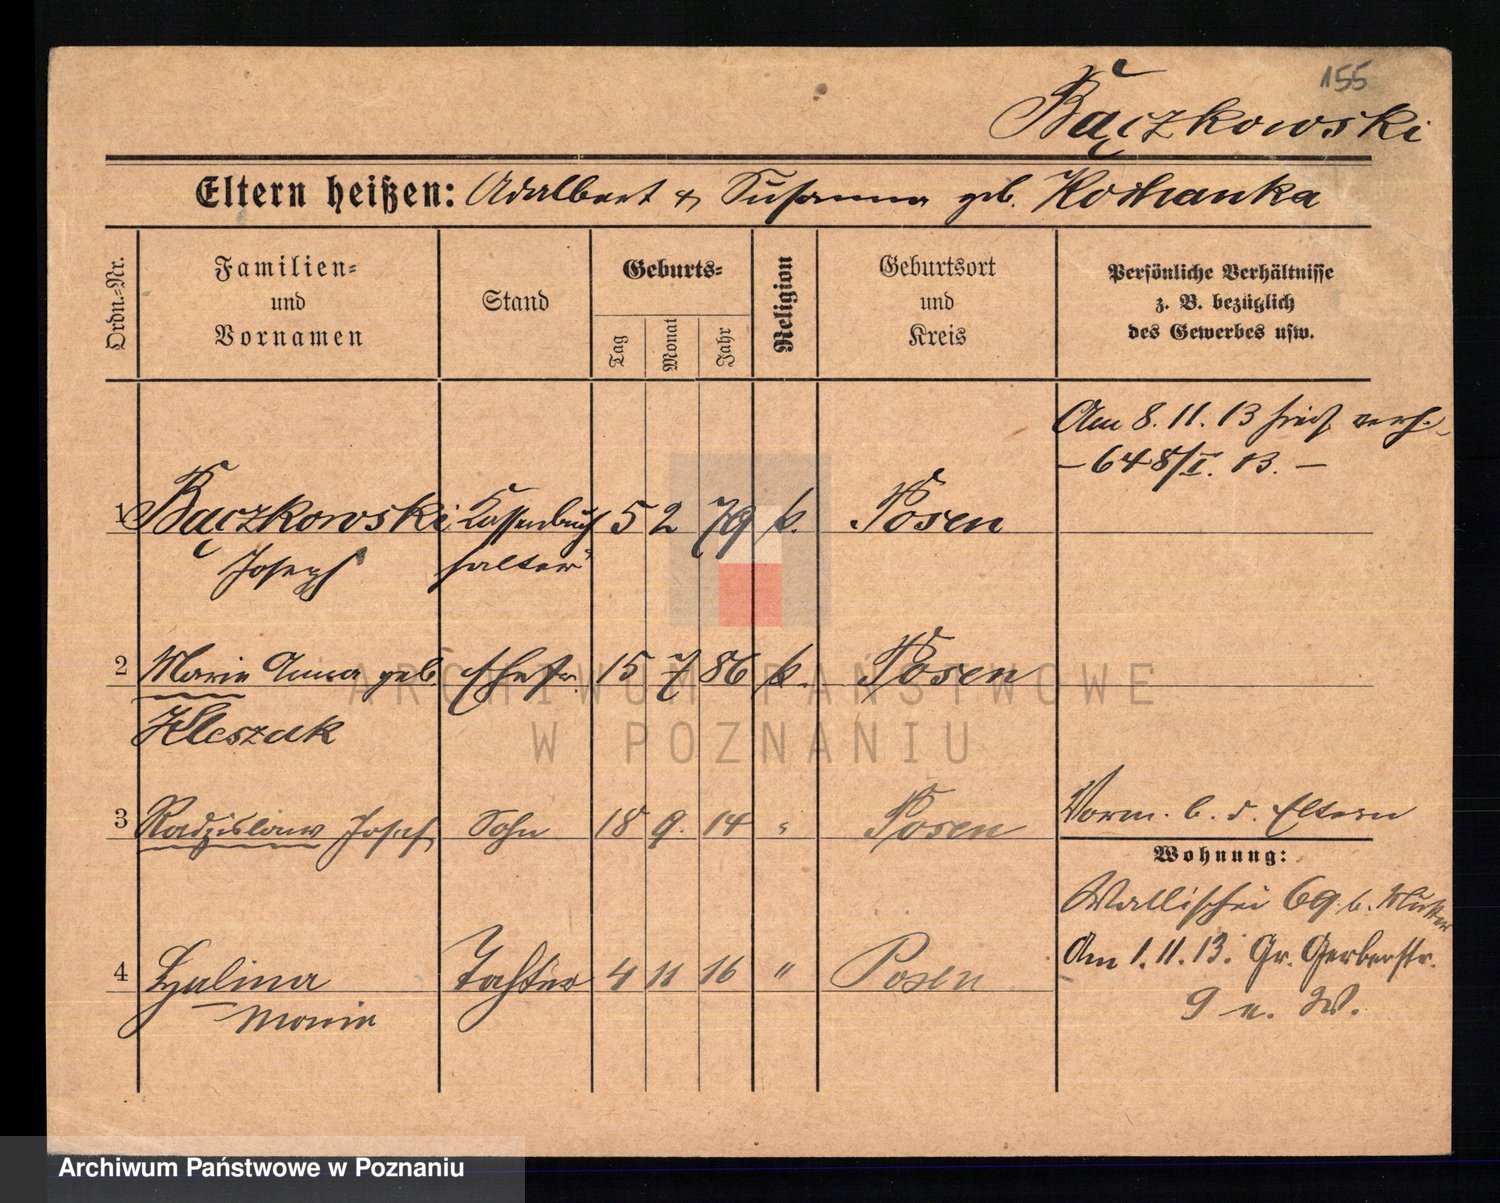 155
Bączkowski
Eltern heißen: Adalbert & Susanna geb. Kochanka
Ordn.=Nr.
Familien=
und
Vornamen
Stand
Geburts=
Tag
Monat
Jahr
Religion
Geburtsort
und
Kreis
Persönliche Verhältnisse
z. B. bezüglich
des Gewerbes usw.
Am 8. 11. 13 hier verh.
– 648/I. 13. –
1 Bączkowski Kassenbuch 5 2 79 k. Posen
Joseph halter
2 Marie Anna geb. Ehefr. 15 7 86 k. Posen
Kleszak
3 Radzislaw Josef Sohn 18 9. 14 " Posen
Vorm. b. d. Eltern
Wohnung:
Wallischei 69 b. Mutter
Am 1. 11. 13. Gr. Gerberstr.
9 u. W.
4 Halina Tochter 4 11 16 " Posen
Marie
ARCHIWUM PAŃSTWOWE
W POZNANIU
Archiwum Państwowe w Poznaniu